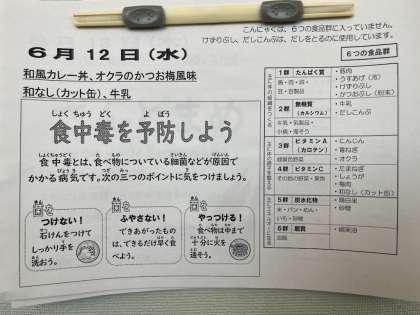 こんにゃくは、6つの食品群に入っていません。
けずりぶし、だしこんぶは、だしをとるのに使用しています。
6月12日(水)
和風カレー丼、オクラのかつお梅風味
和なし(カット缶)、牛乳
しょくちゅうどく よぼう
食中毒を予防しよう
食中毒とは、食べ物についている細菌などが原因で
かかる病気です。次の三つのポイントに気をつけましょう。
菌を
つけない!
石けんをつけて
しっかり手を
洗おう。
菌を
ふやさない!
できあがったもの
は、できるだけ早く食
べよう。
菌を
やっつける!
食べ物は中まで
十分に火を
通そう。
6つの食品群
1群 たんぱく質
・豚肉
・うすあげ(冷)
・けずりぶし
・かつおぶし(粉末)
2群 無機質
(カルシウム)
牛乳・乳製品
小魚・海そう
・牛乳
・だしこんぶ
3群 ビタミンA
(カロテン)
緑黄色野菜
・にんじん
・青ねぎ
・オクラ
4群 ビタミンC
その他の野菜・果物
・たまねぎ
・しょうが
・梅肉
・和なし(カット缶)
5群 炭水化物
米・パン・めん・
いも・砂糖
・精白米
・砂糖
6群 脂質
油脂
・綿実油